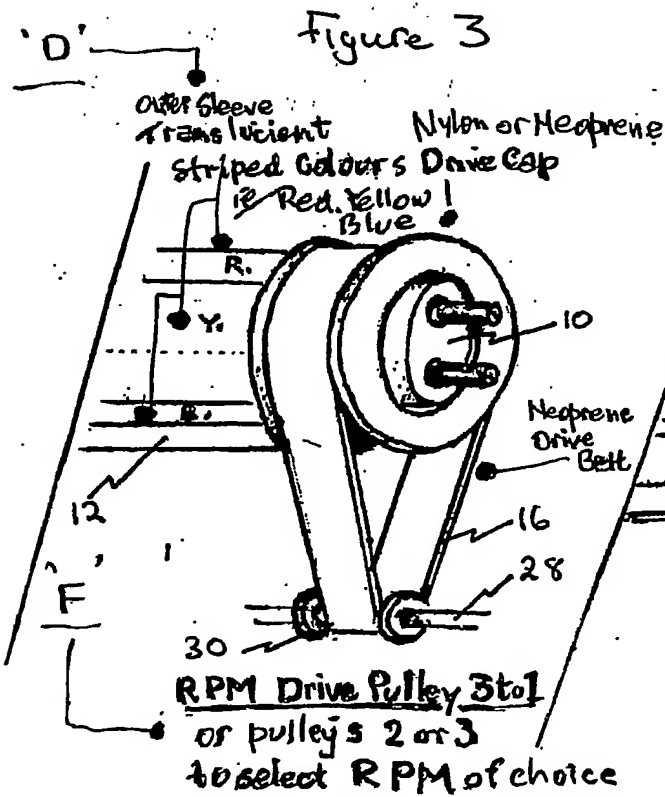 Figure 3
'D'
Outer Sleeve
Translucient
Striped Colours
ie Red. Yellow
Blue
Nylon or Neoprene
Drive Cap
R.
Y.
B.
10
Neoprene
Drive
Belt
12
16
28
'F'
30
RPM Drive Pulley 3 to 1
or pulley's 2 or 3
to select RPM of choice